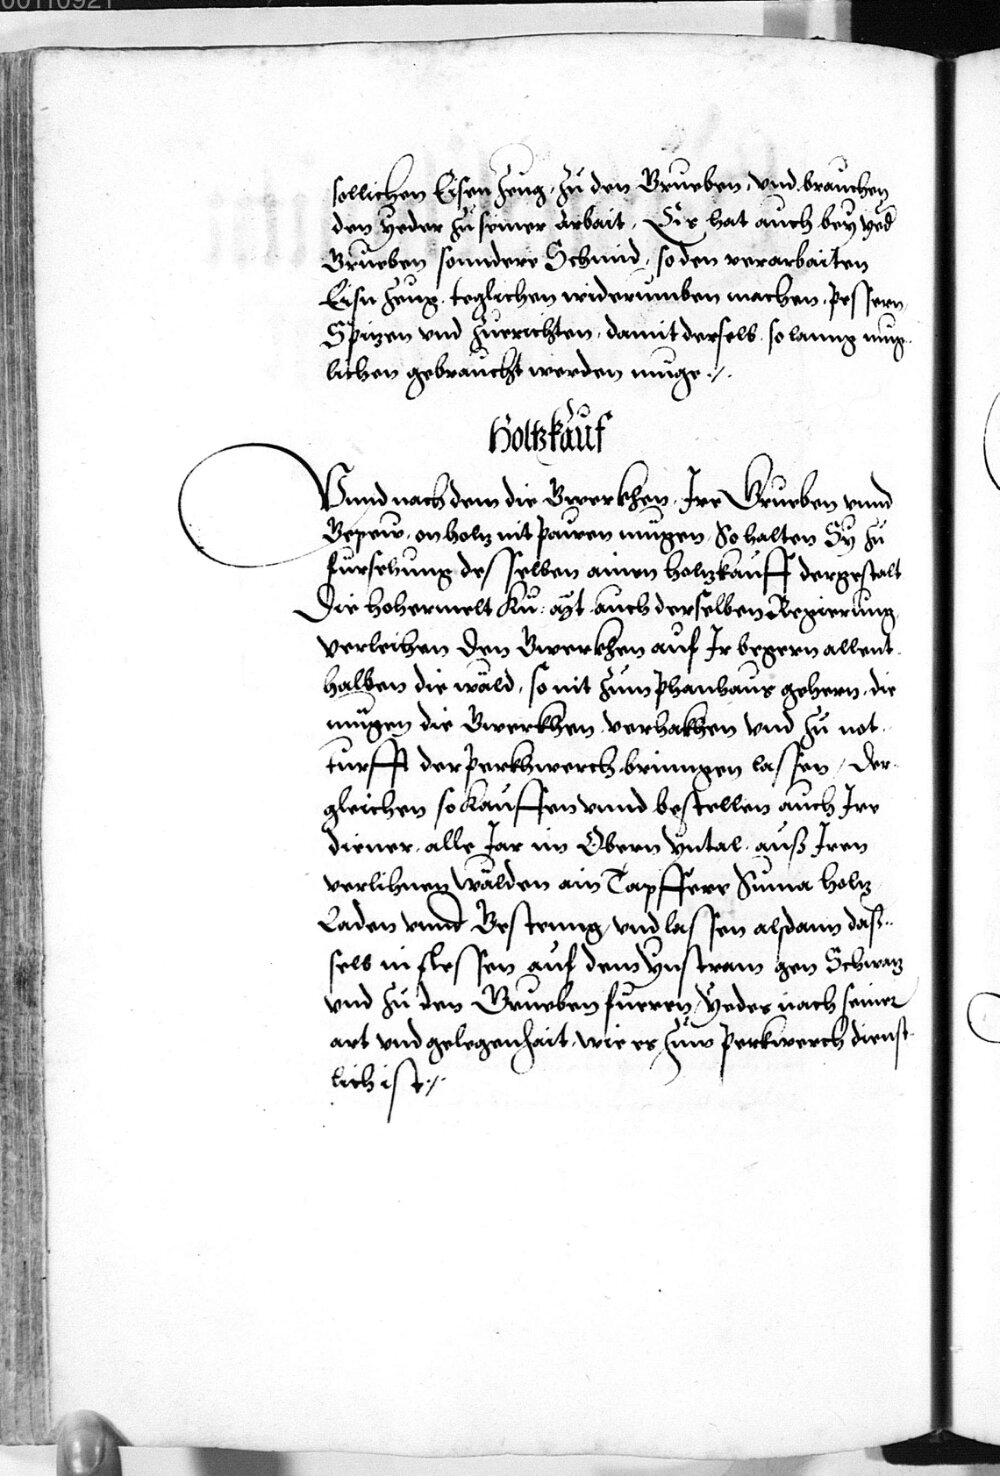 00110921
sollichen Eisen Zeug, zu den Grueben, und brauchen
den yeder zu seiner arbait, Eis hat auch bey yed
Grueben sonndere Schmid, so den verarbaiten
Eisn Zeug, teglichen widerumben machen, pessern,
Spitzen und zuerichten, damit derselb, so lanng mug
lichen gebraucht werden muge ./.
Holtzkauf
Unnd nach dem die Gwerkhen, Ire Grueben unnd
Gepew, on holtz nit pawen mügen, So halten Sy zu
fürsehung desselben ainen holtzkauff dergestalt
Die hohermelt Ku: ayt: auch derselben Regierung
verleihen den Gwerkhen auf Ir begern allent
halben die wäld, so nit zum phanhaus gehern, die
mügen die Gwerkhen verhakhen und zu not
turfft der perkhwerch bringen lassen, Der
gleichen so kauffen unnd bestellen auch Ire
diener, alle Jar im Obern yntal, auß Iren
verlihnen wälden ain Tapffere Suma holtz
Laden unnd, und lassen alsdann daß
selb in flessen auf dem ynstram gen Schwatz
und zu den Grueben fueren, yedes nach seiner
art und gelegenhait, wie es zum perkwerch dienst
lich ist ./.